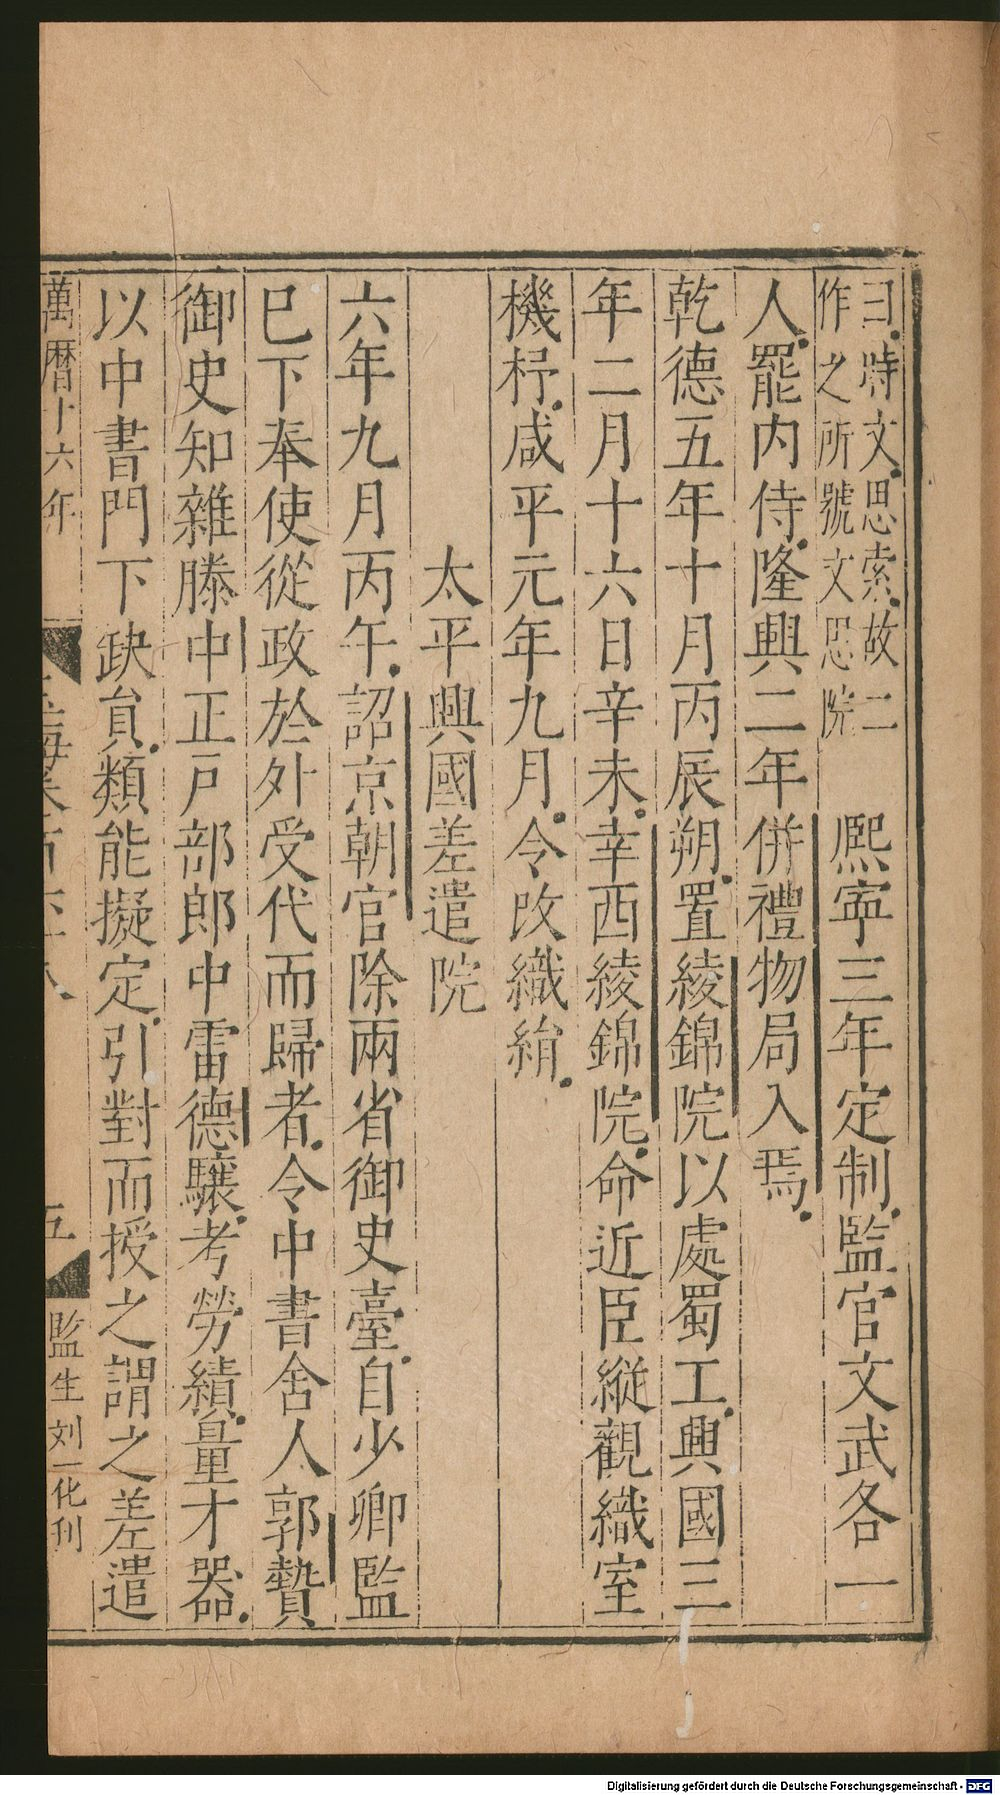 曰時文思索故二
作之所號文思院
熙寜三年定制監官文武各一
人罷内侍隆興二年併禮物局入焉
乾德五年十月丙辰朔置綾錦院以處蜀工興國三
年二月十六日辛未幸西綾錦院命近臣縱觀織室
機杼咸平元年九月令改織絹
太平興國差遣院
六年九月丙午詔京朝官除兩省御史臺自少卿監
已下奉使從政於外受代而歸者令中書舍人郭贄
御史知雜滕中正戸部郎中雷德驤考勞績量才器
以中書門下缺貟類能擬定引對而授之謂之差遣
萬暦十六年
五
監生刘一化刊
Digitalisierung gefördert durch die Deutsche Forschungsgemeinschaft - DFG